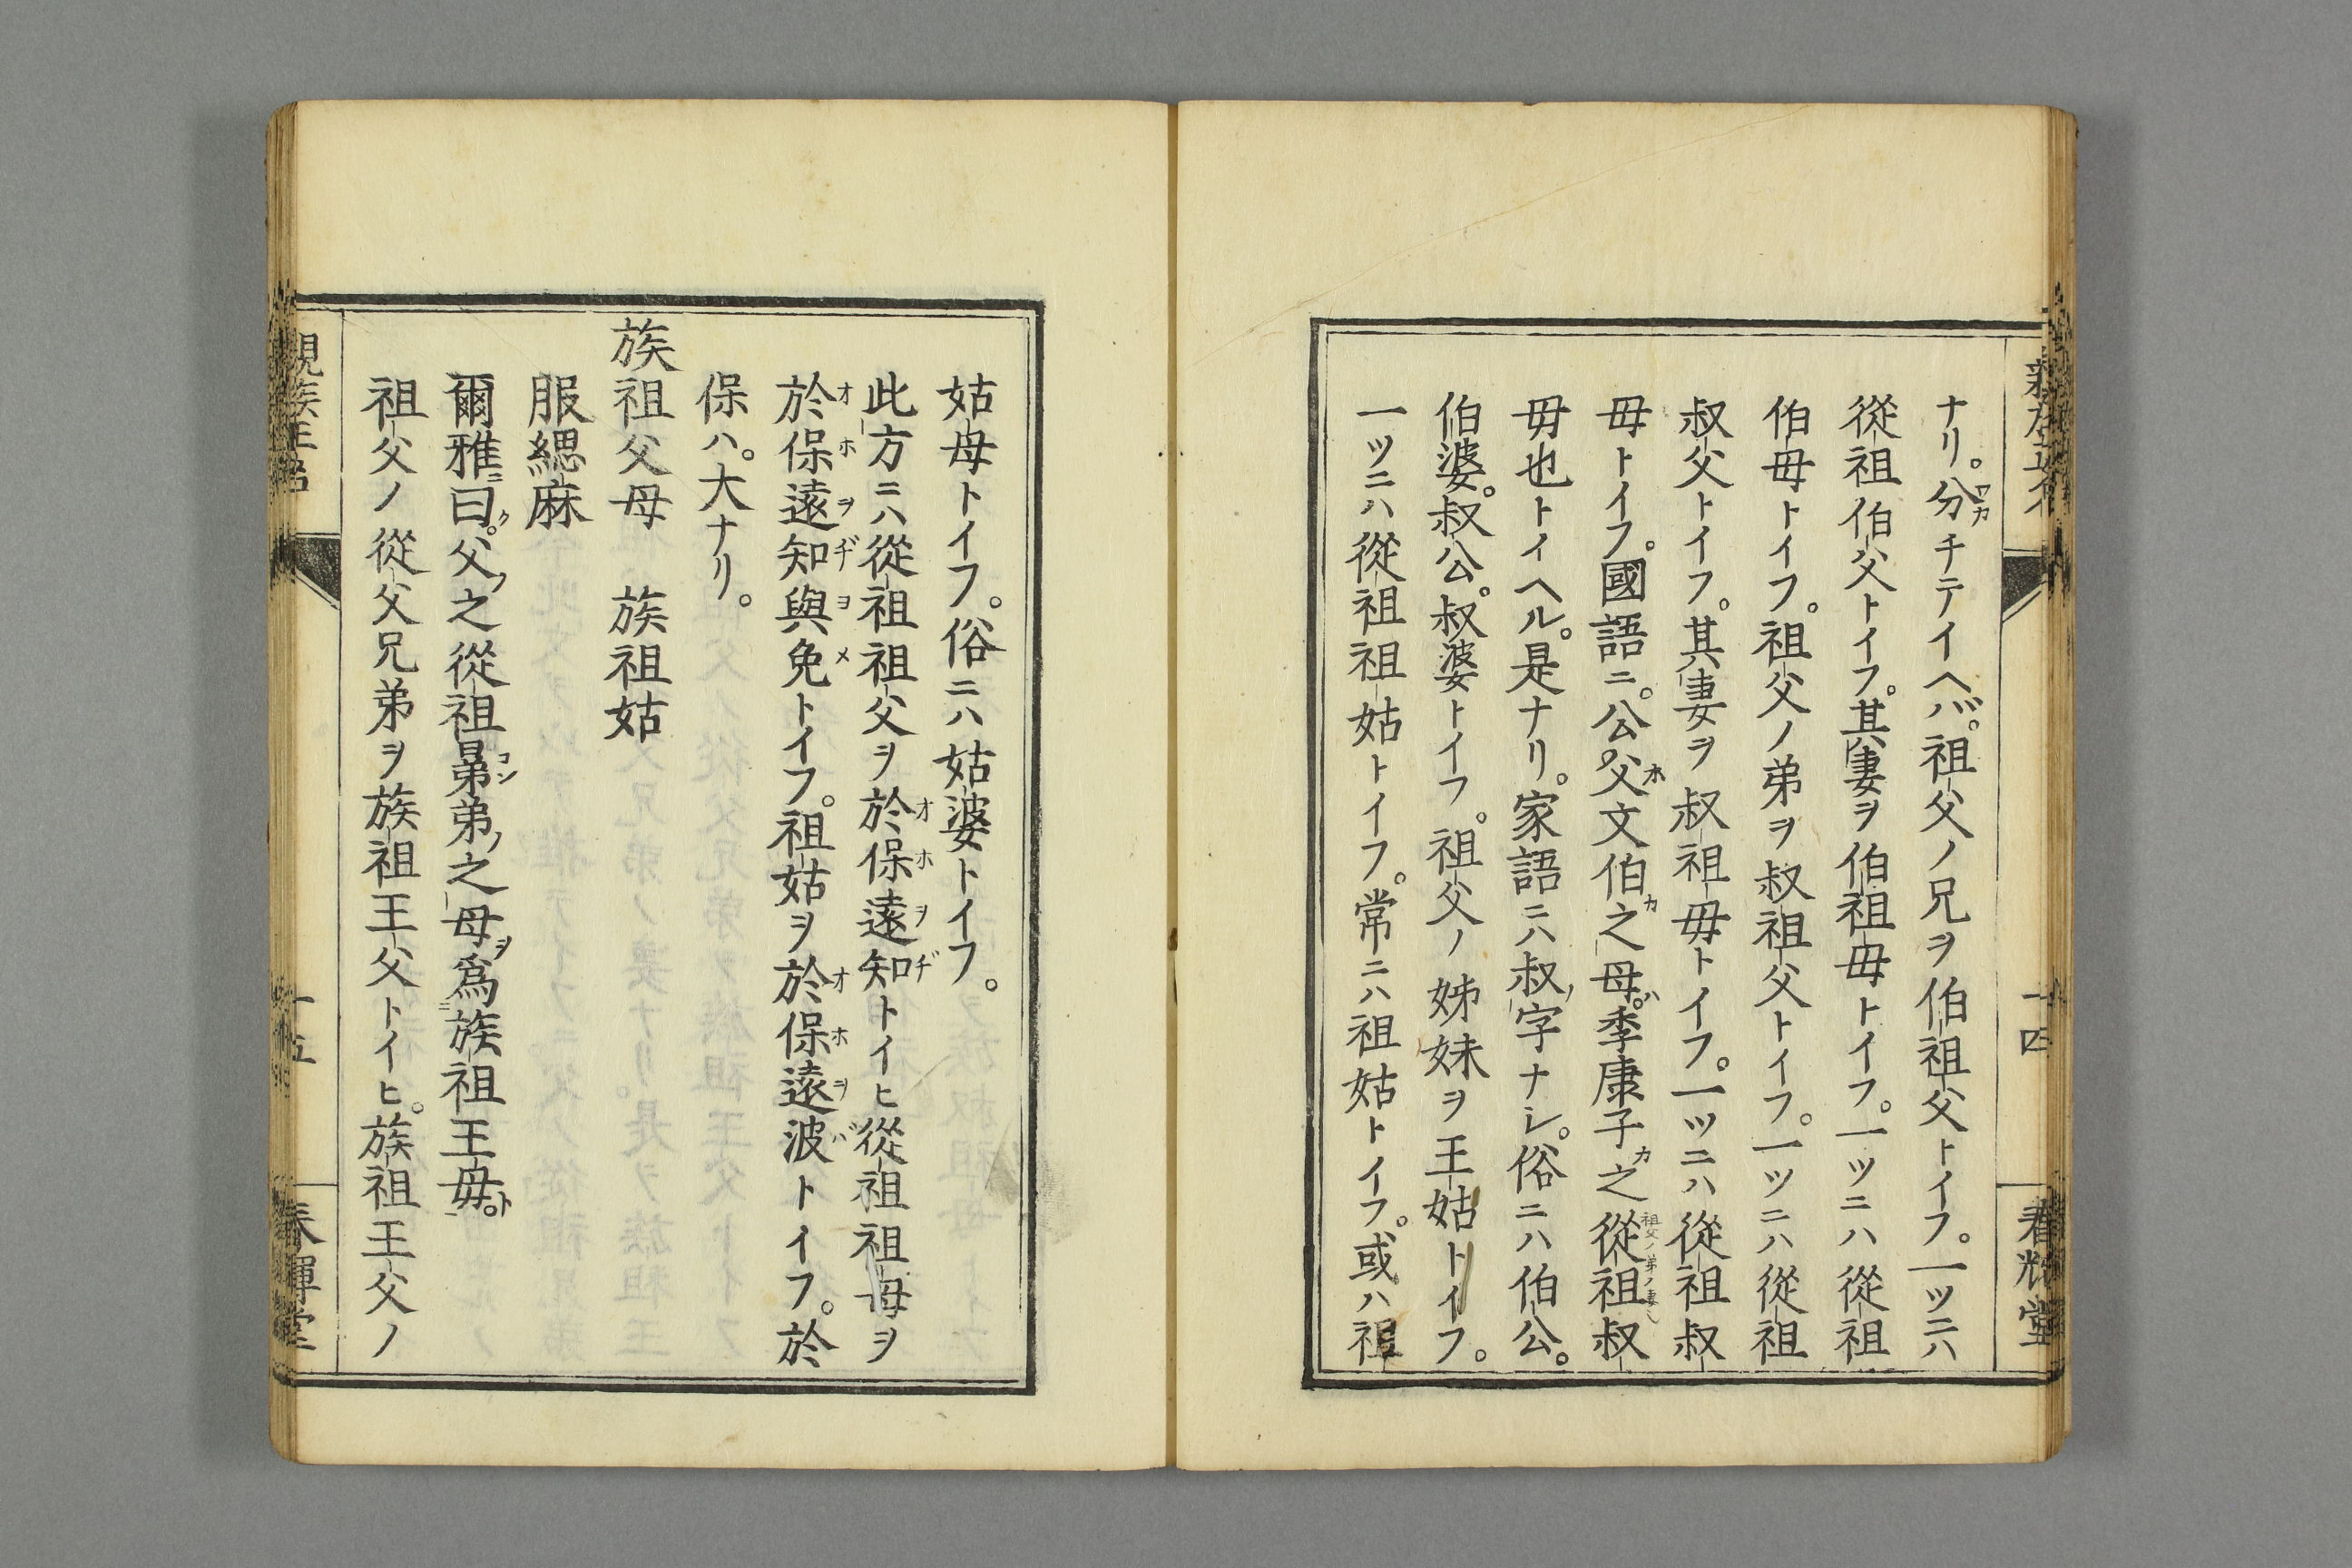 親族正名
十四
春輝堂
ナリ。分チテイヘバ。祖父ノ兄ヲ伯祖父トイフ。一ツニハ
從祖伯父トイフ。其妻ヲ伯祖母トイフ。一ツニハ從祖
伯母トイフ。祖父ノ弟ヲ叔祖父トイフ。一ツニハ從祖
叔父トイフ。其妻ヲ叔祖母トイフ。一ツニハ從祖叔
母トイフ。國語ニ。公父文伯之母。季康子之從祖叔
母也トイヘル。是ナリ。家語ニハ叔ノ字ナシ。俗ニハ伯公。
伯婆。叔公。叔婆トイフ。祖父ノ姊妹ヲ王姑トイフ。
一ツニハ從祖祖姑トイフ。常ニハ祖姑トイフ。或ハ祖
姑母トイフ。俗ニハ姑婆トイフ。
此方ニハ從祖祖父ヲ於保遠知トイヒ從祖祖母ヲ
於保遠知與免トイフ。祖姑ヲ於保遠波トイフ。於
保ハ。大ナリ。
族祖父母　族祖姑
服緦麻
爾雅ニ曰ク。父ノ之從祖晜弟ノ之母ヲ爲族祖王母ト。
祖父ノ從父兄弟ヲ族祖王父トイヒ。族祖王父ノ
親族正名
十五
春輝堂